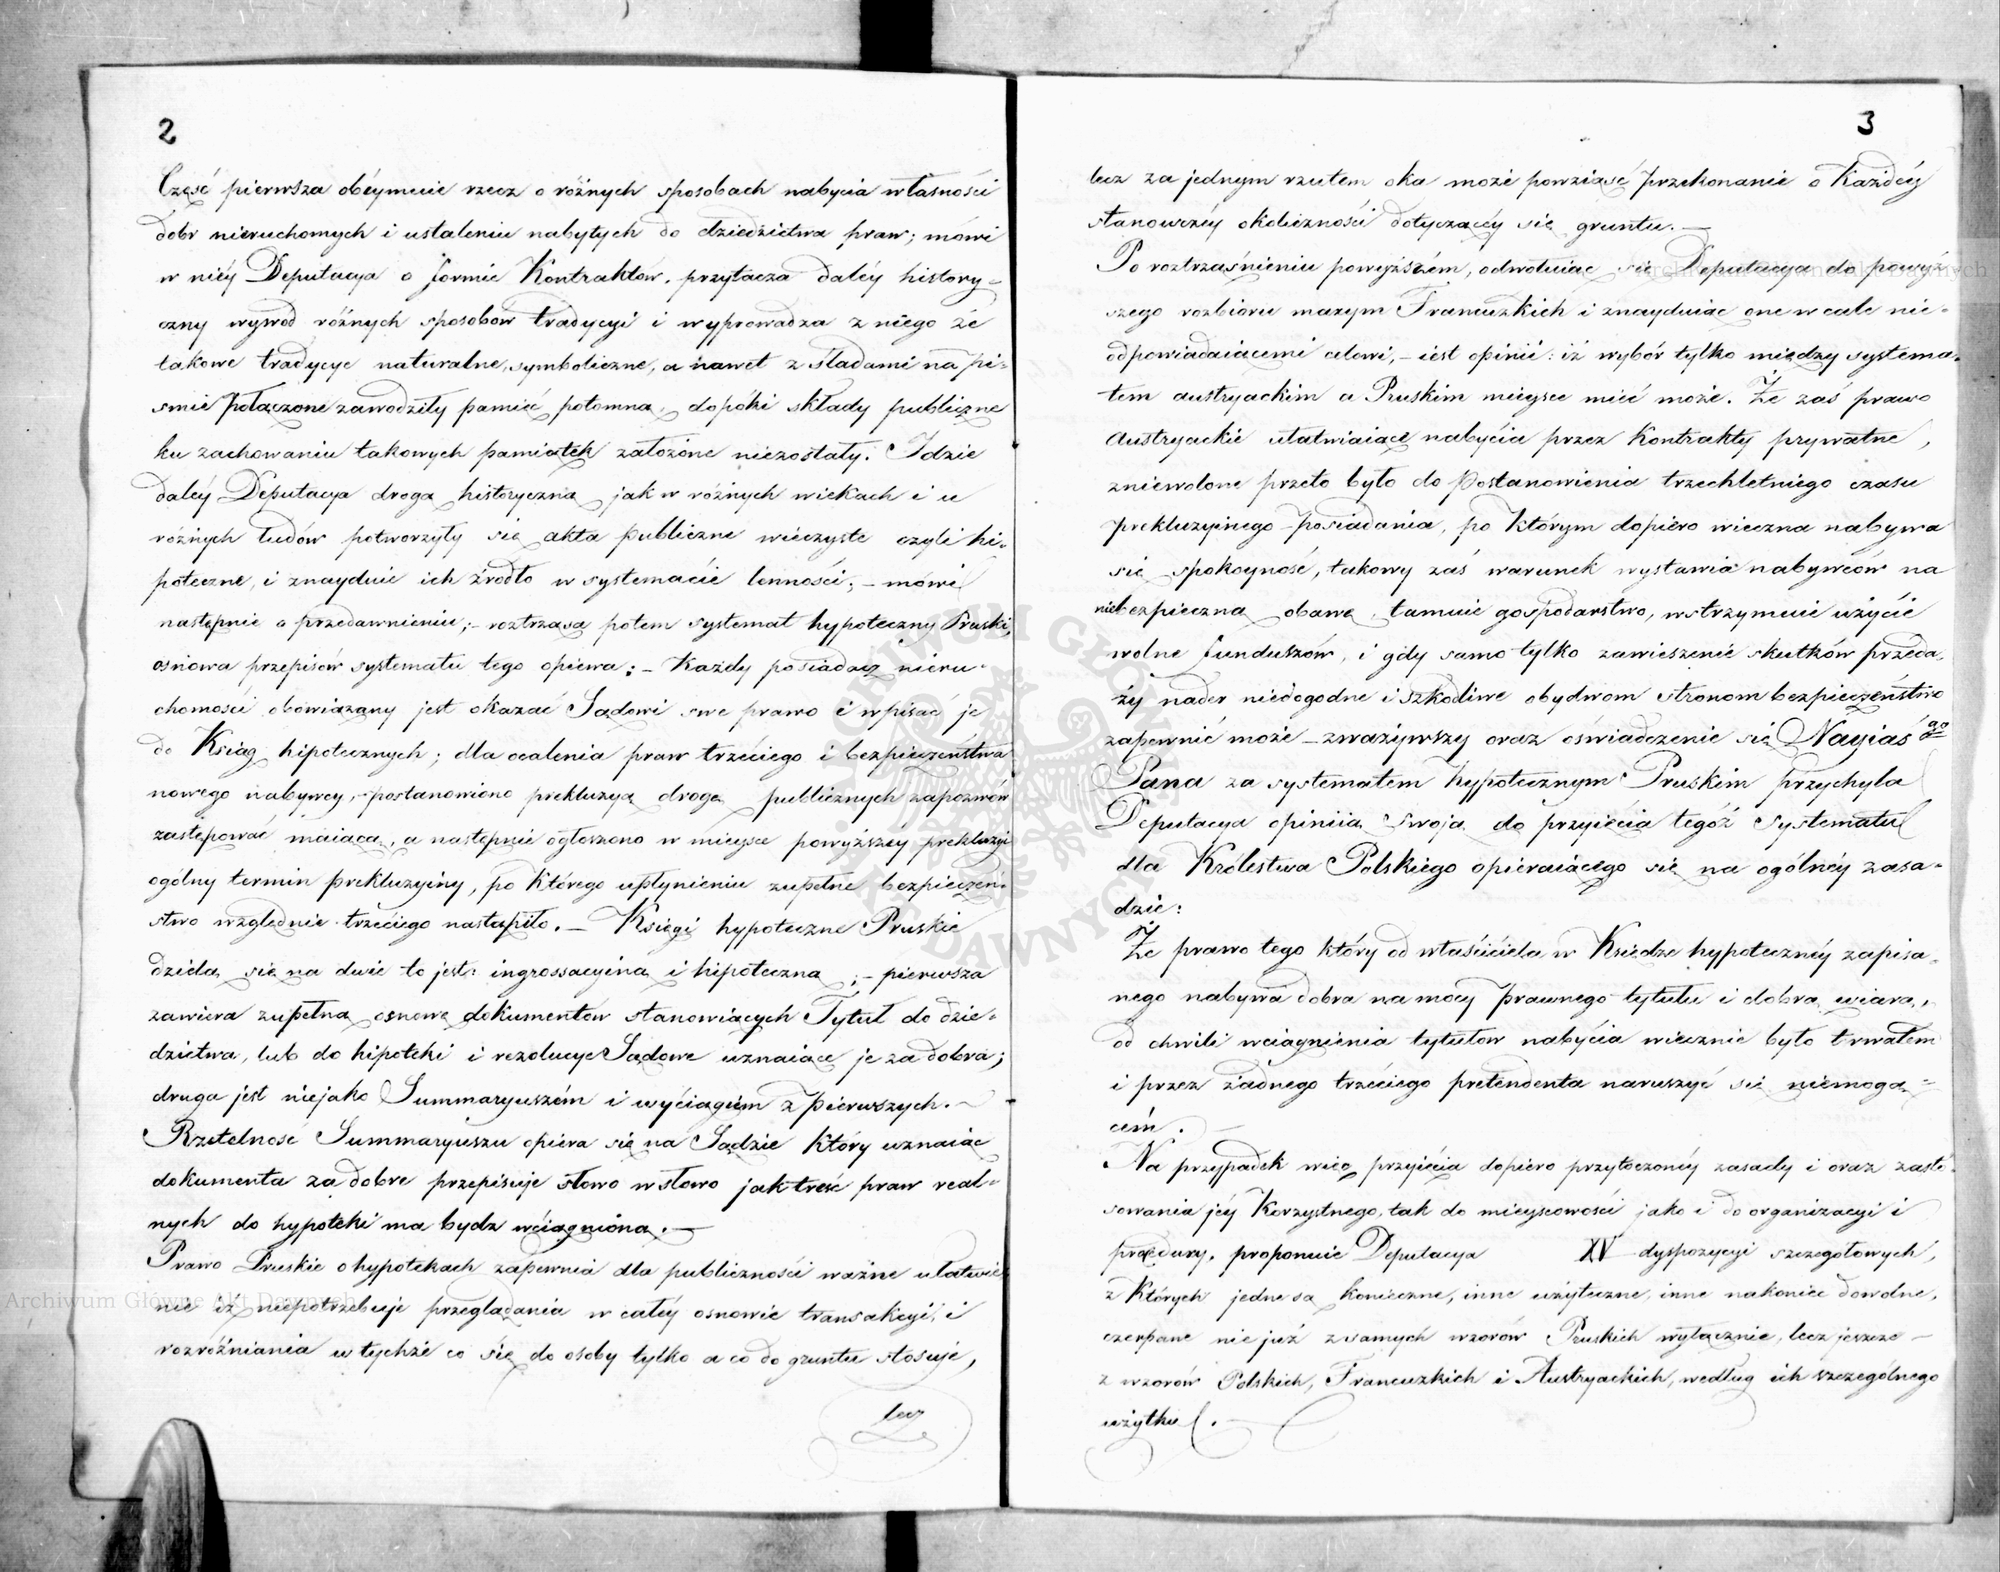 2
Część pierwsza obéymuie rzecz o różnych sposobach nabycia własności
dobr nieruchomych i ustaleniu nabytych do dziedzictwa praw; mówi
w niéy Deputacya o formie Kontraktów, przytacza daléy history-
czny wywód różnych sposobów tradycyi i wyprowadza z niego że
takowe tradycye naturalne, symboliczne, a nawet z śladami na pi-
smie połączone zawodziły pamięć potomną, dopóki składy publiczne
ku zachowaniu takowych pamiątek założone niezostały. Idzie
daléy Deputacya drogą historyczną jak w różnych wiekach i u
różnych ludów potworzyły się akta publiczne wieczyste czyli hi-
poteczne, i znayduie ich źrodło w systemacie lenności; – mówi
następnie o przedawnieniu; – roztrząsa potem systemat hypoteczny Pruski,
osnowa przepisów systematu tego opiewa: – Każdy posiadacz nieru-
chomości obowiązany jest okazać Sądowi swe prawo i wpisać je
do Ksiąg hipotecznych; dla ocalenia praw trzeciego i bezpieczeństwa
nowego nabywcy, – postanowiono prekluzyą drogą publicznych zapozwów
zastępować maiącą, a następnie ogłoszono w mieysce powyższéy prekluzyi
ogólny termin prekluzyiny, po którego upłynieniu zupełne bezpieczeń-
stwo względnie trzeciego nastąpiło. – Księgi hypoteczne Pruskie
dzielą się na dwie to jest: ingrossacyiną i hipoteczną; – pierwsza
zawiera zupełną osnowę dokumentów stanowiących Tytuł do dzie-
dzictwa, lub do hipoteki i rezolucye Sądowe uznaiące je za dobre;
druga jest niejako Summaryuszém i wyciągiem z pierwszych. –
Rzetelność Summaryuszu opiera się na Sądzie który uznaiąc
dokumenta za dobre przepisuje słowo w słowo jak treść praw real-
nych do hypoteki ma bydz wciągnioną. –
Prawo Pruskie o hypotekach zapewnia dla publiczności ważne ułatwie-
nie iż niepotrzebuje przeglądania w całéy osnowie transakcyi, i
rozróżniania w tychże co się do osoby tylko a co do gruntu stosuje,
lecz
3
lecz za jednym rzutem oka może powziąść przekonanie o Każdéy
stanowczéy okoliczności dotyczącéy się gruntu. –
Po roztrząśnieniu powyższém, odwołuiąc się Deputacya do powyż-
szego rozbioru maxym Francuzkich i znayduiąc one wcale nie-
odpowiadaiącemi celowi, – iest opinii: iż wybór tylko między systema-
tem austryackim a Pruskim mieysce mieć może. Że zaś prawo
Austryackie ułatwiaiące nabycia przez Kontrakty prywatne,
zniewolone przeto było do postanowienia trzechletniego czasu
prekluzyinego posiadania, po którym dopiero wieczna nabywa
się spokoyność, takowy zaś warunek wystawia nabywców na
niebezpieczną obawę, tamuie gospodarstwo, wstrzymuie użycie
wolne funduszów, i gdy samo tylko zawieszenie skutków przeda-
ży nader niedogodne i szkodliwe obydwom stronom bezpieczeństwo
zapewnić może – zważywszy oraz oświadczenie się Nayiaś go
Pana za systematem hypotecznym Pruskim przychyla
Deputacya opiniią swoją do przyięcia tegóż Systematu
dla Królestwa Polskiego opieraiącego się na ogólnéy zasa-
dzie:
Że prawo tego który od właściciela w Księdze hypotecznéy zapisa-
nego nabywa dobra na mocy prawnego tytułu i dobrą wiarą,
od chwili wciągnienia tytułow nabycia wiecznie było trwałem
i przez żadnego trzeciego pretendenta naruszyć się niemogą-
cém. –
Na przypadek więc przyięcia dopiero przytoczonéy zasady i oraz zasto-
sowania jéy Korzystnego, tak do mieyscowości jako i do organizacyi i
procedury, proponuie Deputacya XV dyspozycyi szczegółowych,
z Których jedne są konieczne, inne użyteczne, inne nakoniec dowolne,
czerpane nie już z samych wzorów Pruskich wyłącznie, lecz jeszcze –
z wzorów Polskich, Francuzkich i Austryackich, według ich szczególnego
użytku. –